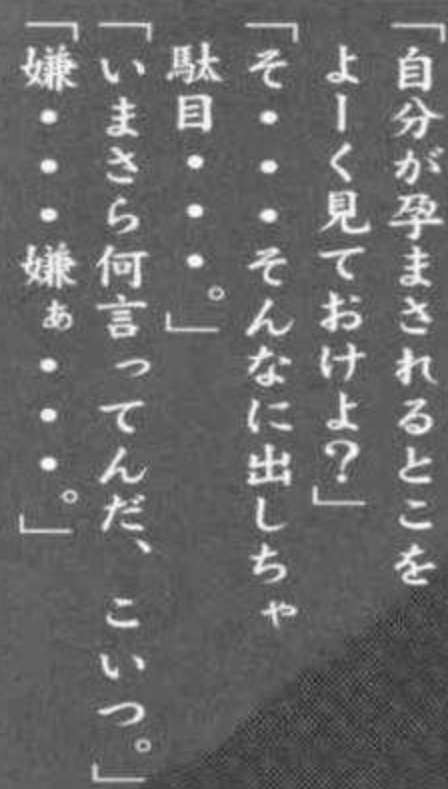 「自分が孕まされるとこを
よーく見ておけよ？」
「そ・・・そんなに出しちゃ
駄目・・・。」
「いまさら何言ってんだ、こいつ。」
「嫌・・・嫌ぁ・・・。」